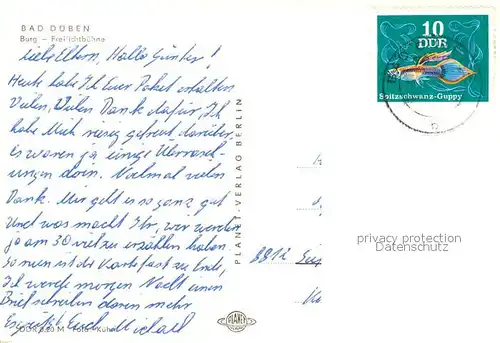 BAD DÜBEN
Burg - Freilichtbühne
Liebe Eltern, Hallo Günter!
Heute habe Ich Euer Paket erhalten
Vielen, Vielen Dank dafür. Ich
habe Mich riesig gefreut darüber,
es waren ja einige Überrasch-
ungen drin. Nochmal vielen
Dank. Mir geht es so ganz gut
Und was macht Ihr, wir werden
ja am 30 viel zu erzählen haben
So nun ist die Karte fast zu Ende,
Ich werde morgen Noch einen
Brief schreiben darin mehr
Es grüßt Euch Michael
DDR 0,20 M Foto - Kühn
PLANET-VERLAG BERLIN
PLANET
10
DDR
Spitzschwanz-Guppy
privacy protection
Datenschutz